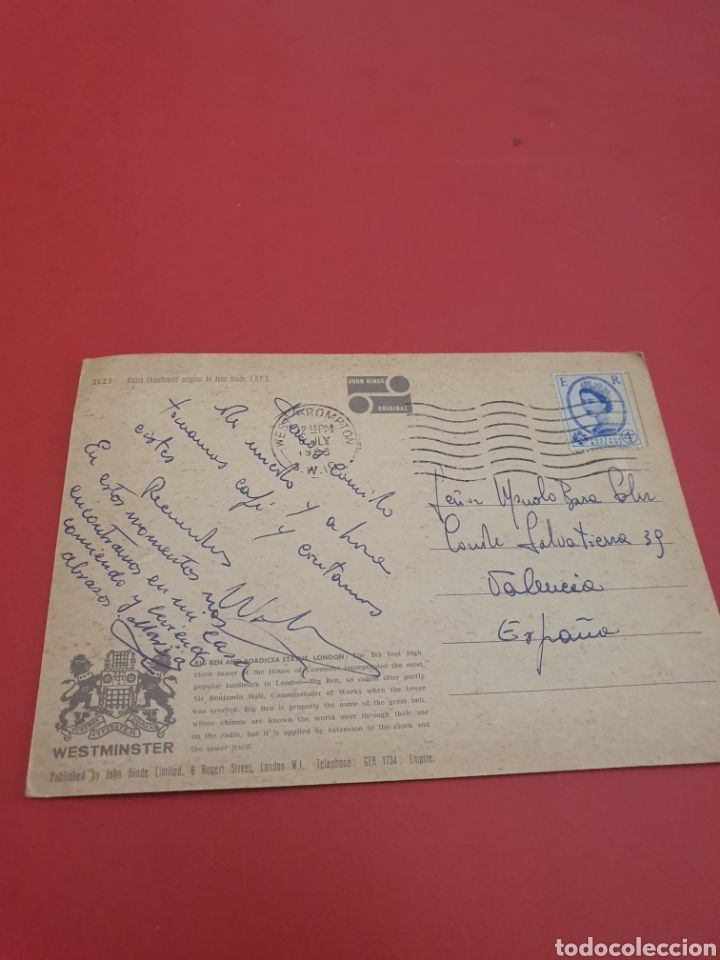 2L23 Kodak Ektachrome original by John Hinde, F.R.P.S.
JOHN HINDE
ORIGINAL
WEST BROMPTON
2 15 PM
JULY
S.W.10
E R
y comido
Me ducho y ahora
tomamos café y contamos
Recuerdos
En estos momentos nos
encontramos en mi casa
comiendo y
abrazos
Señor Manolo
Conde Salvatierra 39
Valencia
España
WESTMINSTER
BIG BEN AND BOADICEA STATUE, LONDON: The 315 foot high
clock-tower of the House of Commons incorporates the most
popular landmark in London—Big Ben, so called after portly
Sir Benjamin Hall, Commissioner of Works when the tower
was erected. Big Ben is properly the name of the great bell,
whose chimes are known the world over through their use
on the radio, but it is applied by extension to the clock and
the tower itself.
Published by John Hinde Limited, 8 Rupert Street, London W.1. Telephone: GER 1734: Empire.
todocoleccion